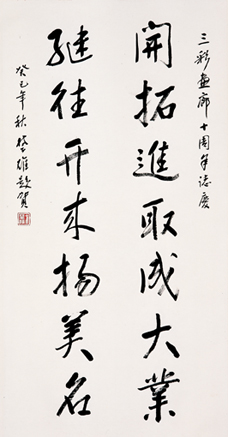 三彩畫廊十周年誌慶
開拓進取成大業
継往开来揚美名
癸巳年秋雄敬賀